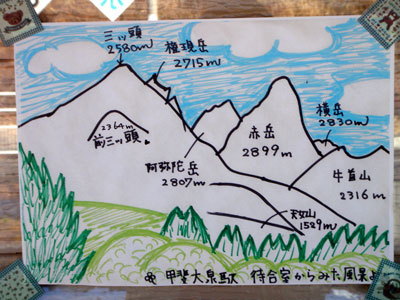 三ッ頭
2580m
権現岳
2715m
2364m
前三ッ頭
赤岳
2899m
横岳
2830m
阿弥陀岳
2807m
牛首山
2316m
天女山
1529m
甲斐大泉駅 待合室からみた風景よ